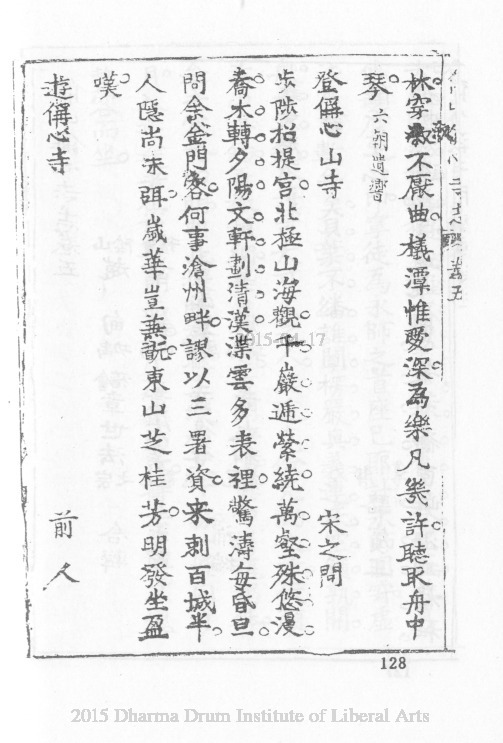 林穿溆不厭曲。檥潭惟愛深。為樂凡幾許。聽取舟中
琴。六朝遺響
登偁心山寺 宋之問
步陟招提宮。北極山海觀。千巖遞縈繞。萬壑殊悠漫。
喬木轉夕陽。文軒劃清漢。渫雲多表裡。驚濤每昏旦。
問余金門客。何事滄州畔。謬以三署資。来刺百城半。
人隱尚未弭。嵗華豈兼翫。東山芝桂芳。明發坐盈
嘆。
遊偁心寺 前人
2015-04-17
128
2015 Dharma Drum Institute of Liberal Arts